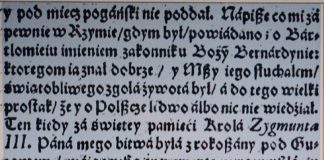 y pod miecż pogáński nie poddał. Nápißę co mi zá
pewnie w Rzymie / gdym był / powiádano: i o Bár-
tłomieiu imieniem zakonniku Bożỹ Bernardynie:
ktoregom ia znał dobrze / y Mßy iego słuchałem /
świątobliwego zgołá żywotá był / á do tego wielki
prostak / że y o Polßcże ledwo álbo nic nie wiedźiał.
Ten kiedy zá świetey pámięći Krolá Zygmuntá
III. Páná mego bitwá byłá z rokoßány pod Gu-